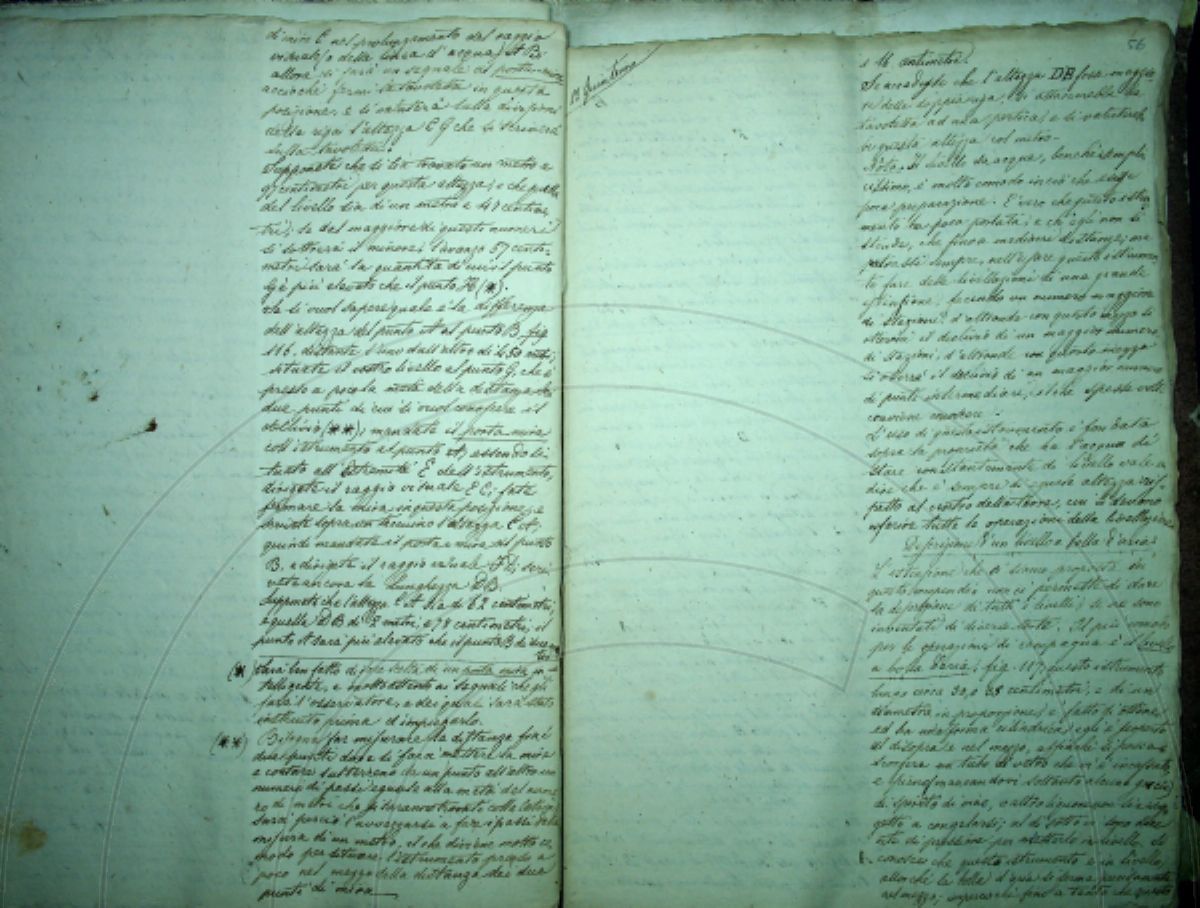 di mira C nel prolungamento del raggio
visuale, o della linea d'acqua, A B:
allora si farà un segnale al porta-mira
acciochè fermi la tavoletta in questa
posizione, e si valuterà sulla divisione
della riga l'altezza C G che si
sulla tavoletta.
Supponete che si sia trovato un metro e
centimetri per questa altezza, e che quella
del livello sia di un metro e 40 centime
tri; se dal maggiore di questi numeri
si sottrerà il minore; l'avanzo 57 centi-
metri sarà la quantità di cui il punto
G è più elevato che il punto H (*).
Se si vuol sapere quale è la differenza
dell'altezza del punto A al punto B, fig
116, distante l'uno dall'altro di 150 metri,
situate il vostro livello al punto G, che è
presso a poco la metà della distanza de
due punti di cui si vuol conoscere il
declivio (**); mandate il porta mira
coll'istrumento al punto A, essendo si-
tuato all'estremità E dell'istrumento,
dirigete il raggio visuale E C; fate
fermare la mira in questa posizione, e
sopra un l'altezza C A.
quindi mandate il porta-mira al punto
B, e dirigete il raggio visuale F D; scri
vete ancora la lunghezza D B.
Supponete che l'altezza C A sia di 62 centimetri,
e quella D B di 2 metri, e 78 centimetri, il
punto A sarà più elevato che il punto B di due me
tri
(*) Sarà ben fatto di fare scelta di un porta mira in-
telligente, e molto attento ai segnali che gli
farà l'osservatore, e dei quali sarà stato
instruito prima d'impiegarlo.
(**) Bisogna far misurare la distanza fra i
due punti dove si farà mettere la mira
e contare sul terreno da un punto all'altro un
numero di passi eguale alla metà del nume
ro di metri che si saranno trovati colla catena
sarà perciò l'avvezzarsi a fare i passi della
misura di un metro, il che diviene molto co
modo per situare l'istrumento presso a
poco nel mezzo della distanza dei due
punti di mira
56
e 16 centimetri.
Se accadesse che l'altezza DB fosse maggio
re della , si la
tavoletta ad una pertica, e si valuterà
questa altezza col metro.
Nota. Il livello da acqua, benchè sempli
cissimo, è molto comodo in ciò che esige
poca preparazione. È vero che questo istru
mento ha poca portata, e ch'egli non si
stende, che fino a mediocri distanze; ma
potrassi sempre, nell'usare questo istrumen
to fare delle livellazioni di una grande
estensione, facendo un numero maggiore
di stazioni; d'altronde con questo mezzo si
otterrà il declivio di un maggior numero
di stazioni, d'altronde con questo mezzo
si otterrà il declivio di un maggior numero
di punti intermediarj, il che spesse volte
conviene conoscere.
L'uso di questo istrumento è fondato
sopra la proprietà che ha l'acqua di
stare constantemente di livello vale a
dire che è sempre di eguale altezza ris
petto al centro della terra, cui si devono
riferire tutte le operazioni della livellazione
Descrizione d'un livello a bolla d'aria.
L'estensione che ci siamo proposta in
questo compendio non ci permette di dare
la descrizione di tutti i livelli; se ne sono
inventati di diverse sorte. Il più comodo
per le operazioni di campagna è il livello
a bolla d'aria, fig. 117, questo istrumento
lungo circa 30, o 38 centimetri, e di un
diametro in proporzione, è fatto di ottone,
ed ha una forma cilindrica; egli è
al disopra e nel mezzo, affinchè si possa
scorgere un tubo di vetro che vi è incassato,
e pieno, mancandovi soltanto alcune goccie
di spirito di vino, o altro liquore non sì sog
getto a congelarsi; al di sotto vi sono due
viti di pressione per metterlo in livello. Si
conosce che questo istrumento è in livello,
allorchè la bolla d'aria si ferma precisamente
nel mezzo; imperocchè fino a tanto che questo